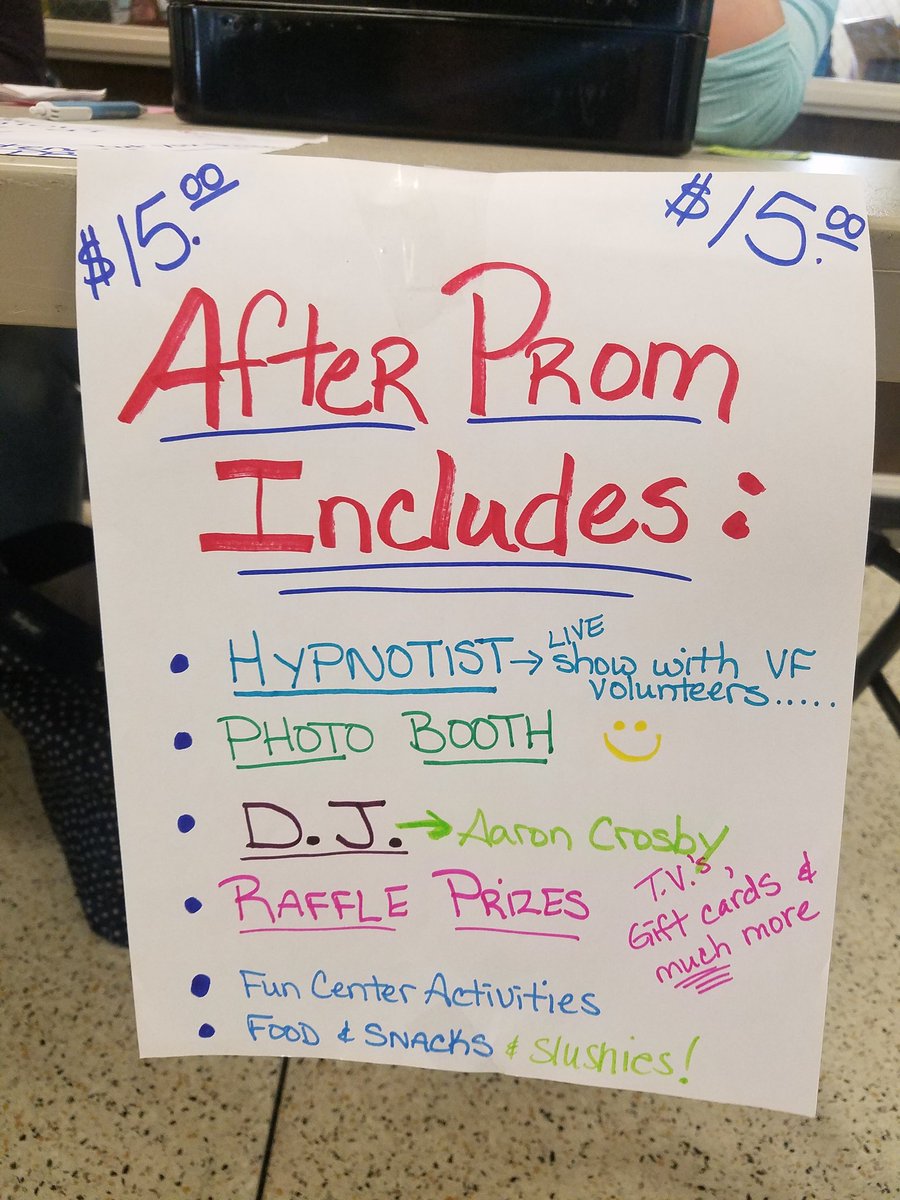 $15.00
$15.00
After Prom
Includes:
• HYPNOTIST → LIVE show with VF
volunteers.....
• PHOTO BOOTH
• D.J. → Aaron Crosby
• RAFFLE PRIZES
T.V.'s,
Gift cards &
much more
• Fun Center Activities
• FOOD & SNACKS & Slushies!